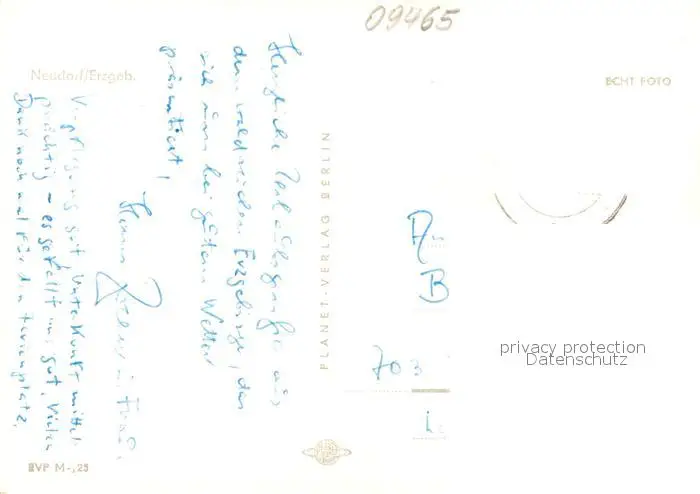 09465
Neudorf/Erzgeb.
ECHT FOTO
Herzliche Urlaubsgrüße aus
dem waldreichen Erzgebirge, das
sich nun bei gutem Wetter
präsentiert!
Herr und Frau
Verpflegung gut Unterkunft mittel-
prächtig – es gefällt uns gut, Vielen
Dank noch mal für den Ferienplatz.
PLANET-VERLAG BERLIN
An
B
703
L
privacy protection
Datenschutz
EVP M-,25